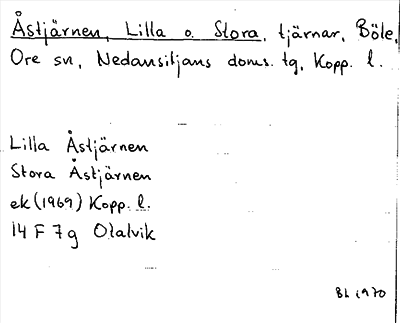 Åstjärnen, Lilla o. Stora, tjärnar, Böle,
Ore sn, Nedansiljans doms. tg, Kopp. l.
Lilla Åstjärnen
Stora Åstjärnen
ek (1969) Kopp. l.
14 F 7 g Olalvik
BL 1970